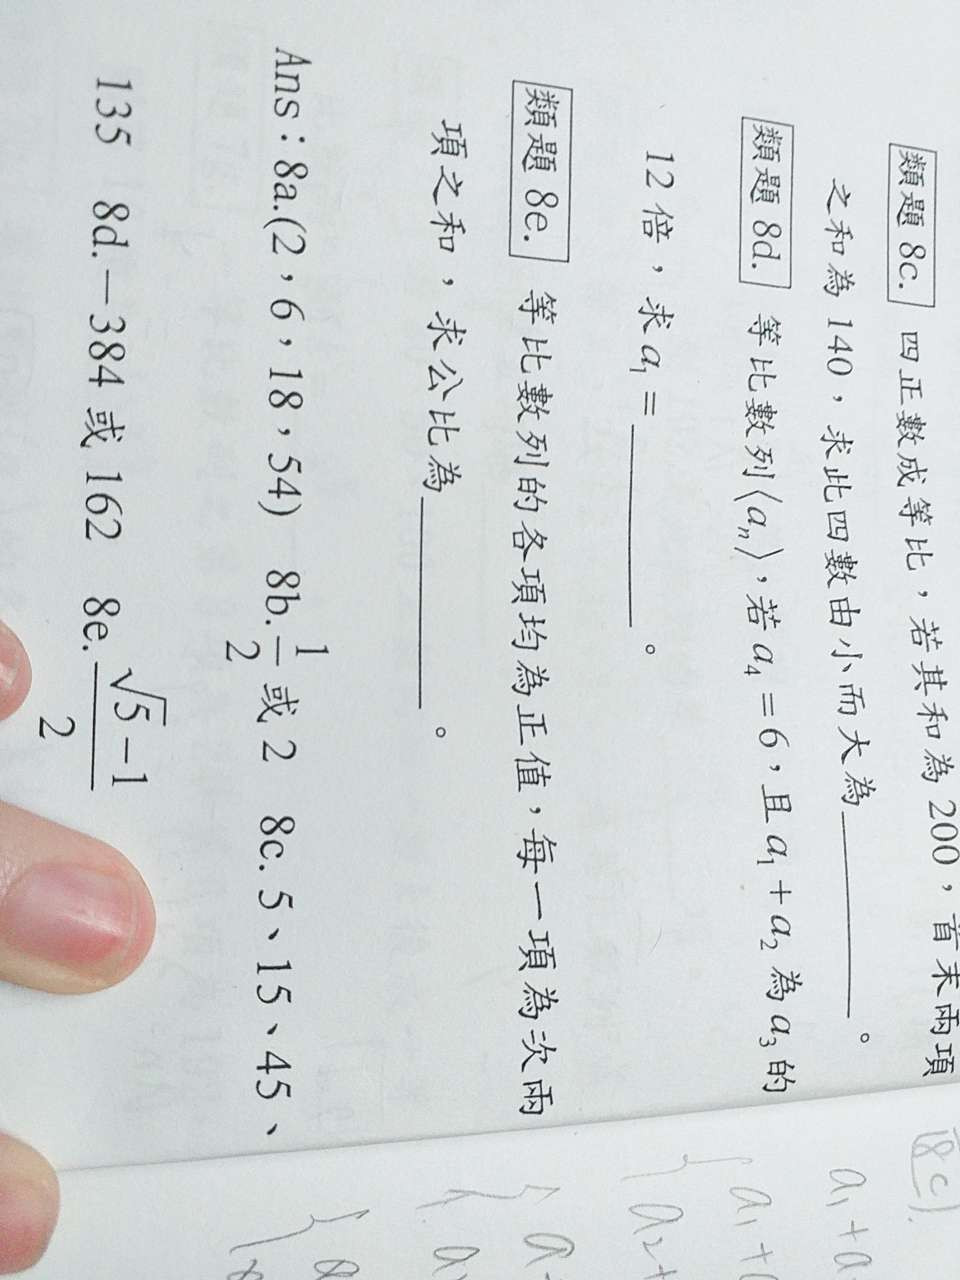 類題 8c. 四正數成等比，若其和為 200，首末兩項
之和為 140，求此四數由小而大為＿＿＿＿＿。
類題 8d. 等比數列⟨aₙ⟩，若 a₄＝6，且 a₁＋a₂ 為 a₃ 的
12 倍，求 a₁＝＿＿＿＿＿。
類題 8e. 等比數列的各項均為正值，每一項為次兩
項之和，求公比為＿＿＿＿＿。
Ans：8a.(2，6，18，54) 8b. 1/2 或 2 8c. 5、15、45、
135 8d.－384 或 162 8e. (√5－1)/2
8c).
a₁+a
{ a₁+
a₂+